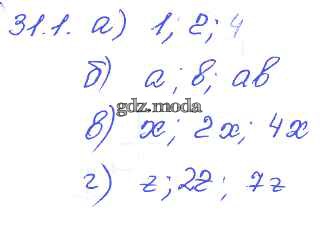 31.1. а) 1; 2; 4
б) a; b; ab
gdz.moda
в) x; 2x; 4x
г) z; 2z; 7z